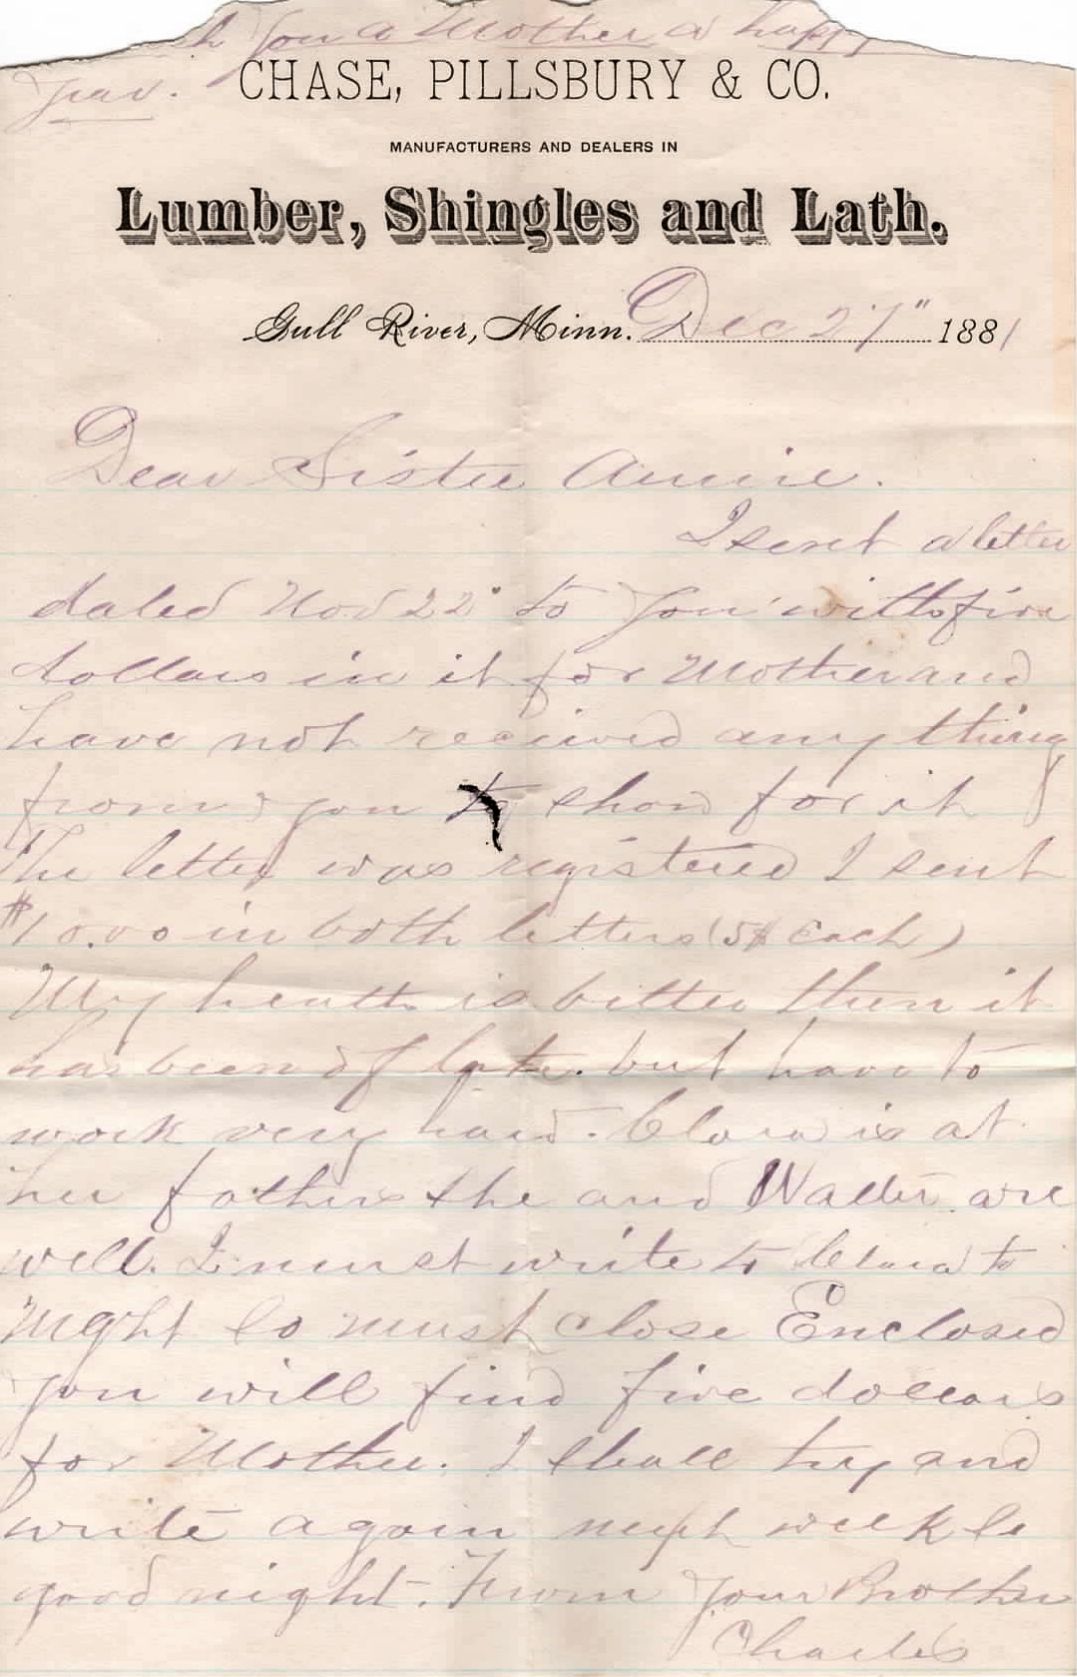 h you & Mother a happy
year.
CHASE, PILLSBURY & CO.
MANUFACTURERS AND DEALERS IN
Lumber, Shingles and Lath.
Gull River, Minn. Dec 27" 1881
Dear Sister Annie.
I sent a letter
dated Nov 22" to you with five
dollars in it for Mother and
have not recieved any thing
from you to show for it
The letter was registered I sent
$10.00 in both letters (5$ Each)
My health is better then it
has been of late. but have to
work very hard. Clara is at
her fathers she and Walter are
well. I must write to Clara to
night so must close Enclosed
you will find five dollars
for Mother. I shall try and
write again next week so
good night. From your Brother
Charles